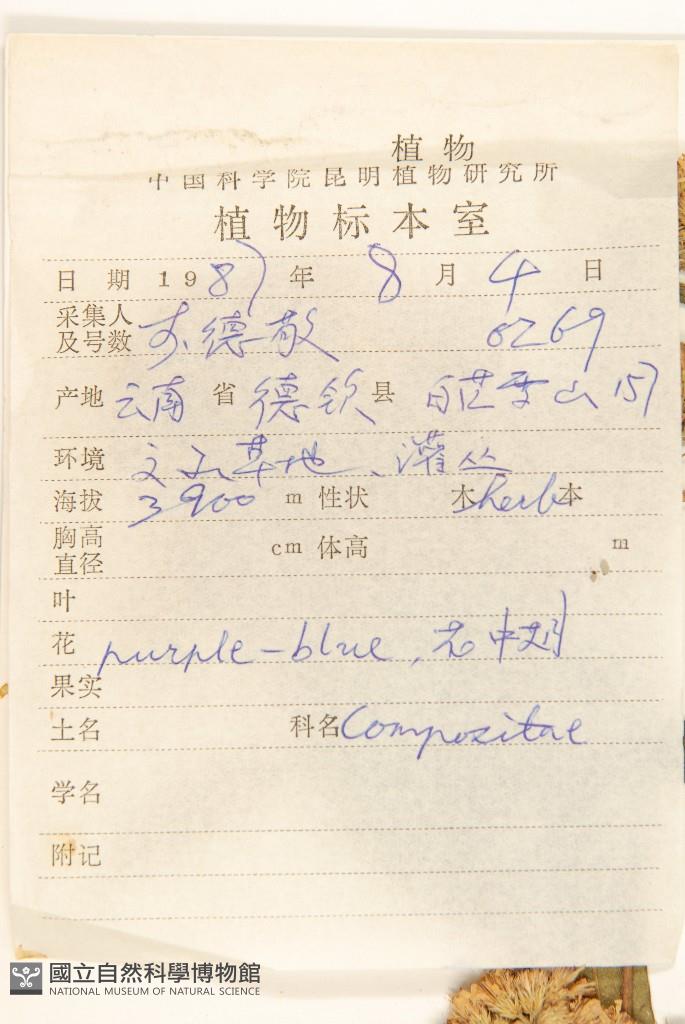 植物
中国科学院昆明植物研究所
植物标本室
日 期 1987 年 8 月 4 日
采集人
及号数 德敬 6269
产地 云南 省 德钦 县 白茫雪山 157
环境 草地、灌丛
海拔 3900 m 性状 木 herb 本
胸高
直径 cm 体高 m
叶
花 purple-blue,
果实
土名 科名 Compositae
学名
附记
國立自然科學博物館
NATIONAL MUSEUM OF NATURAL SCIENCE